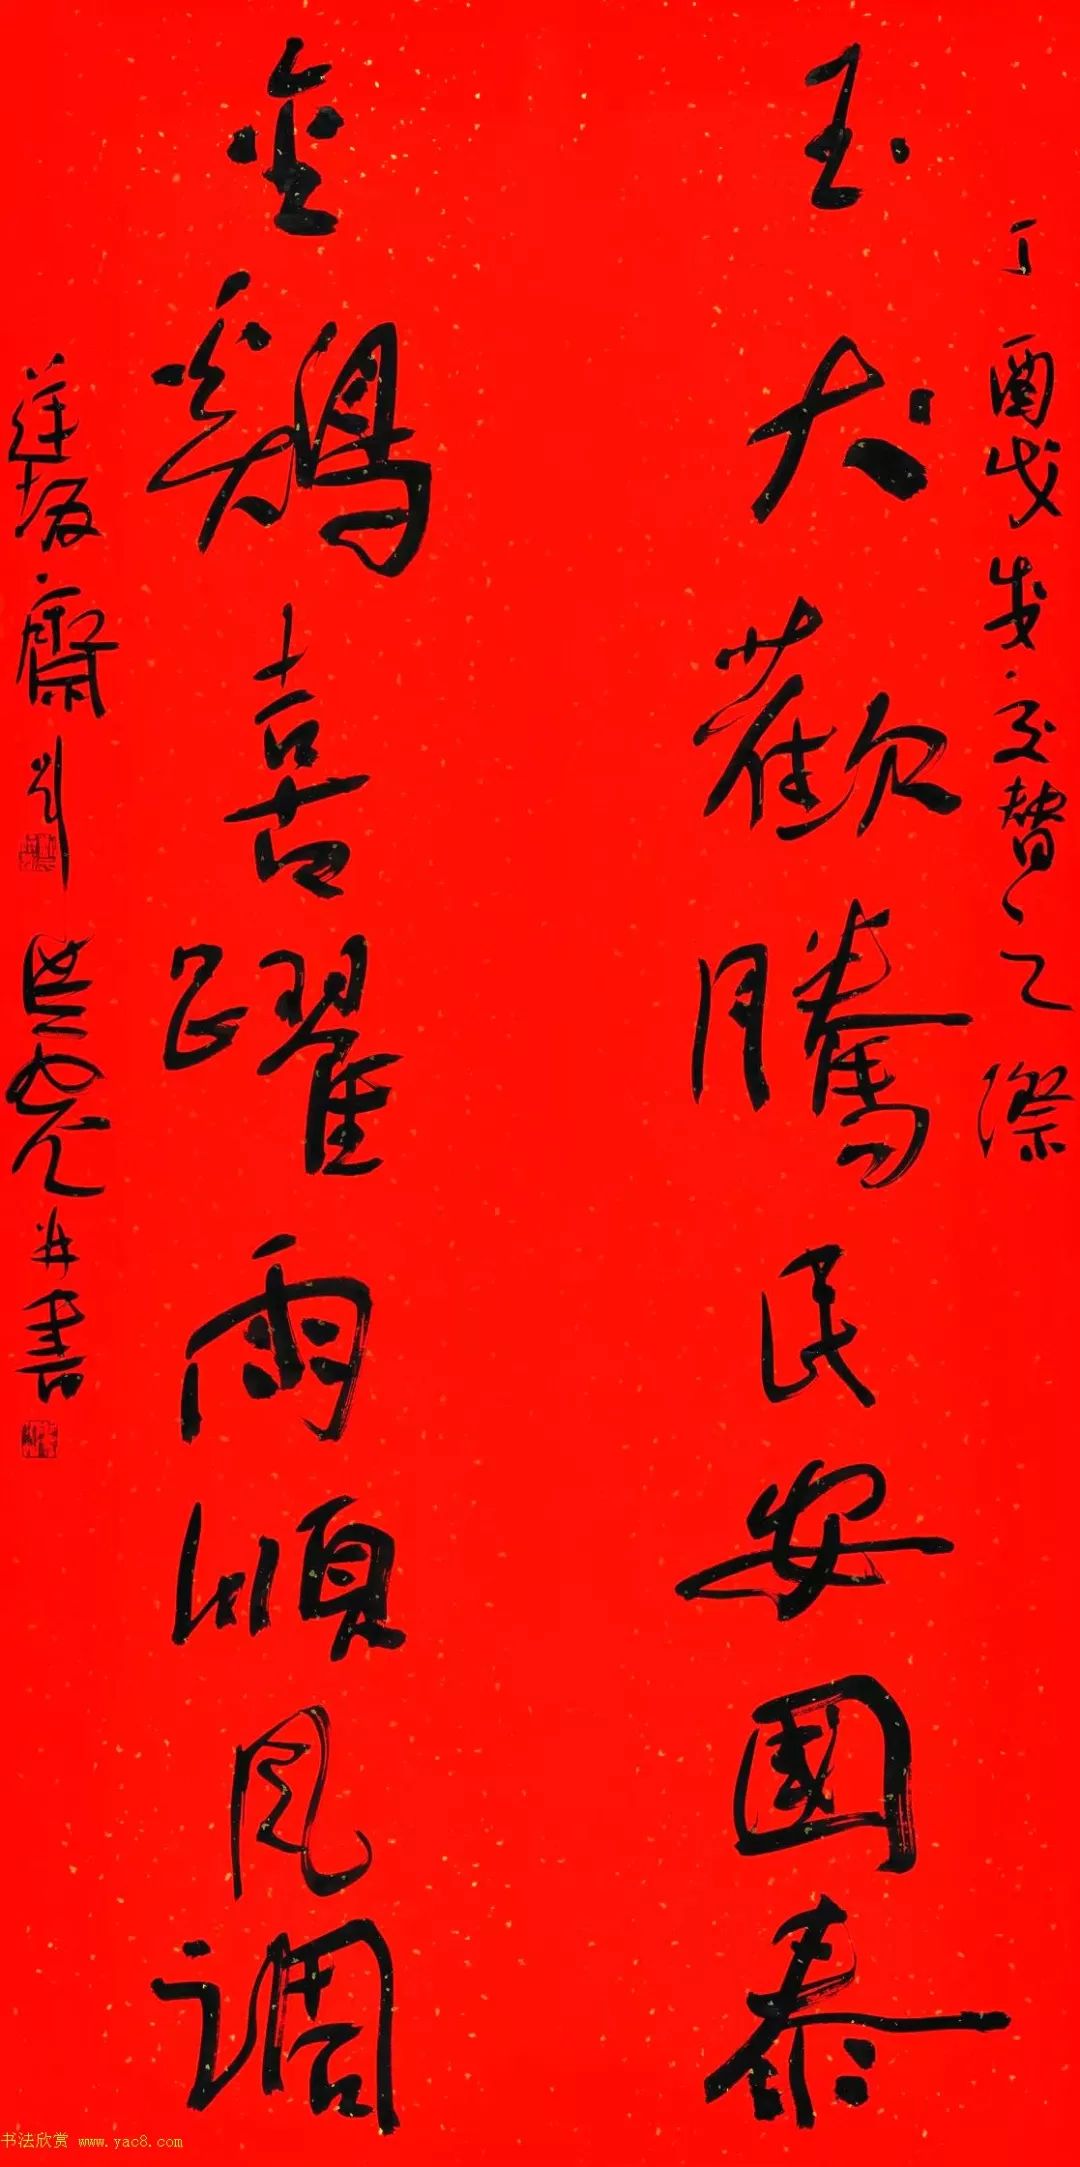 丁酉戊戌交替之際
玉犬歡騰民安國泰
金鷄喜躍雨順風調
齋
并書
书法欣赏 www.yac8.com